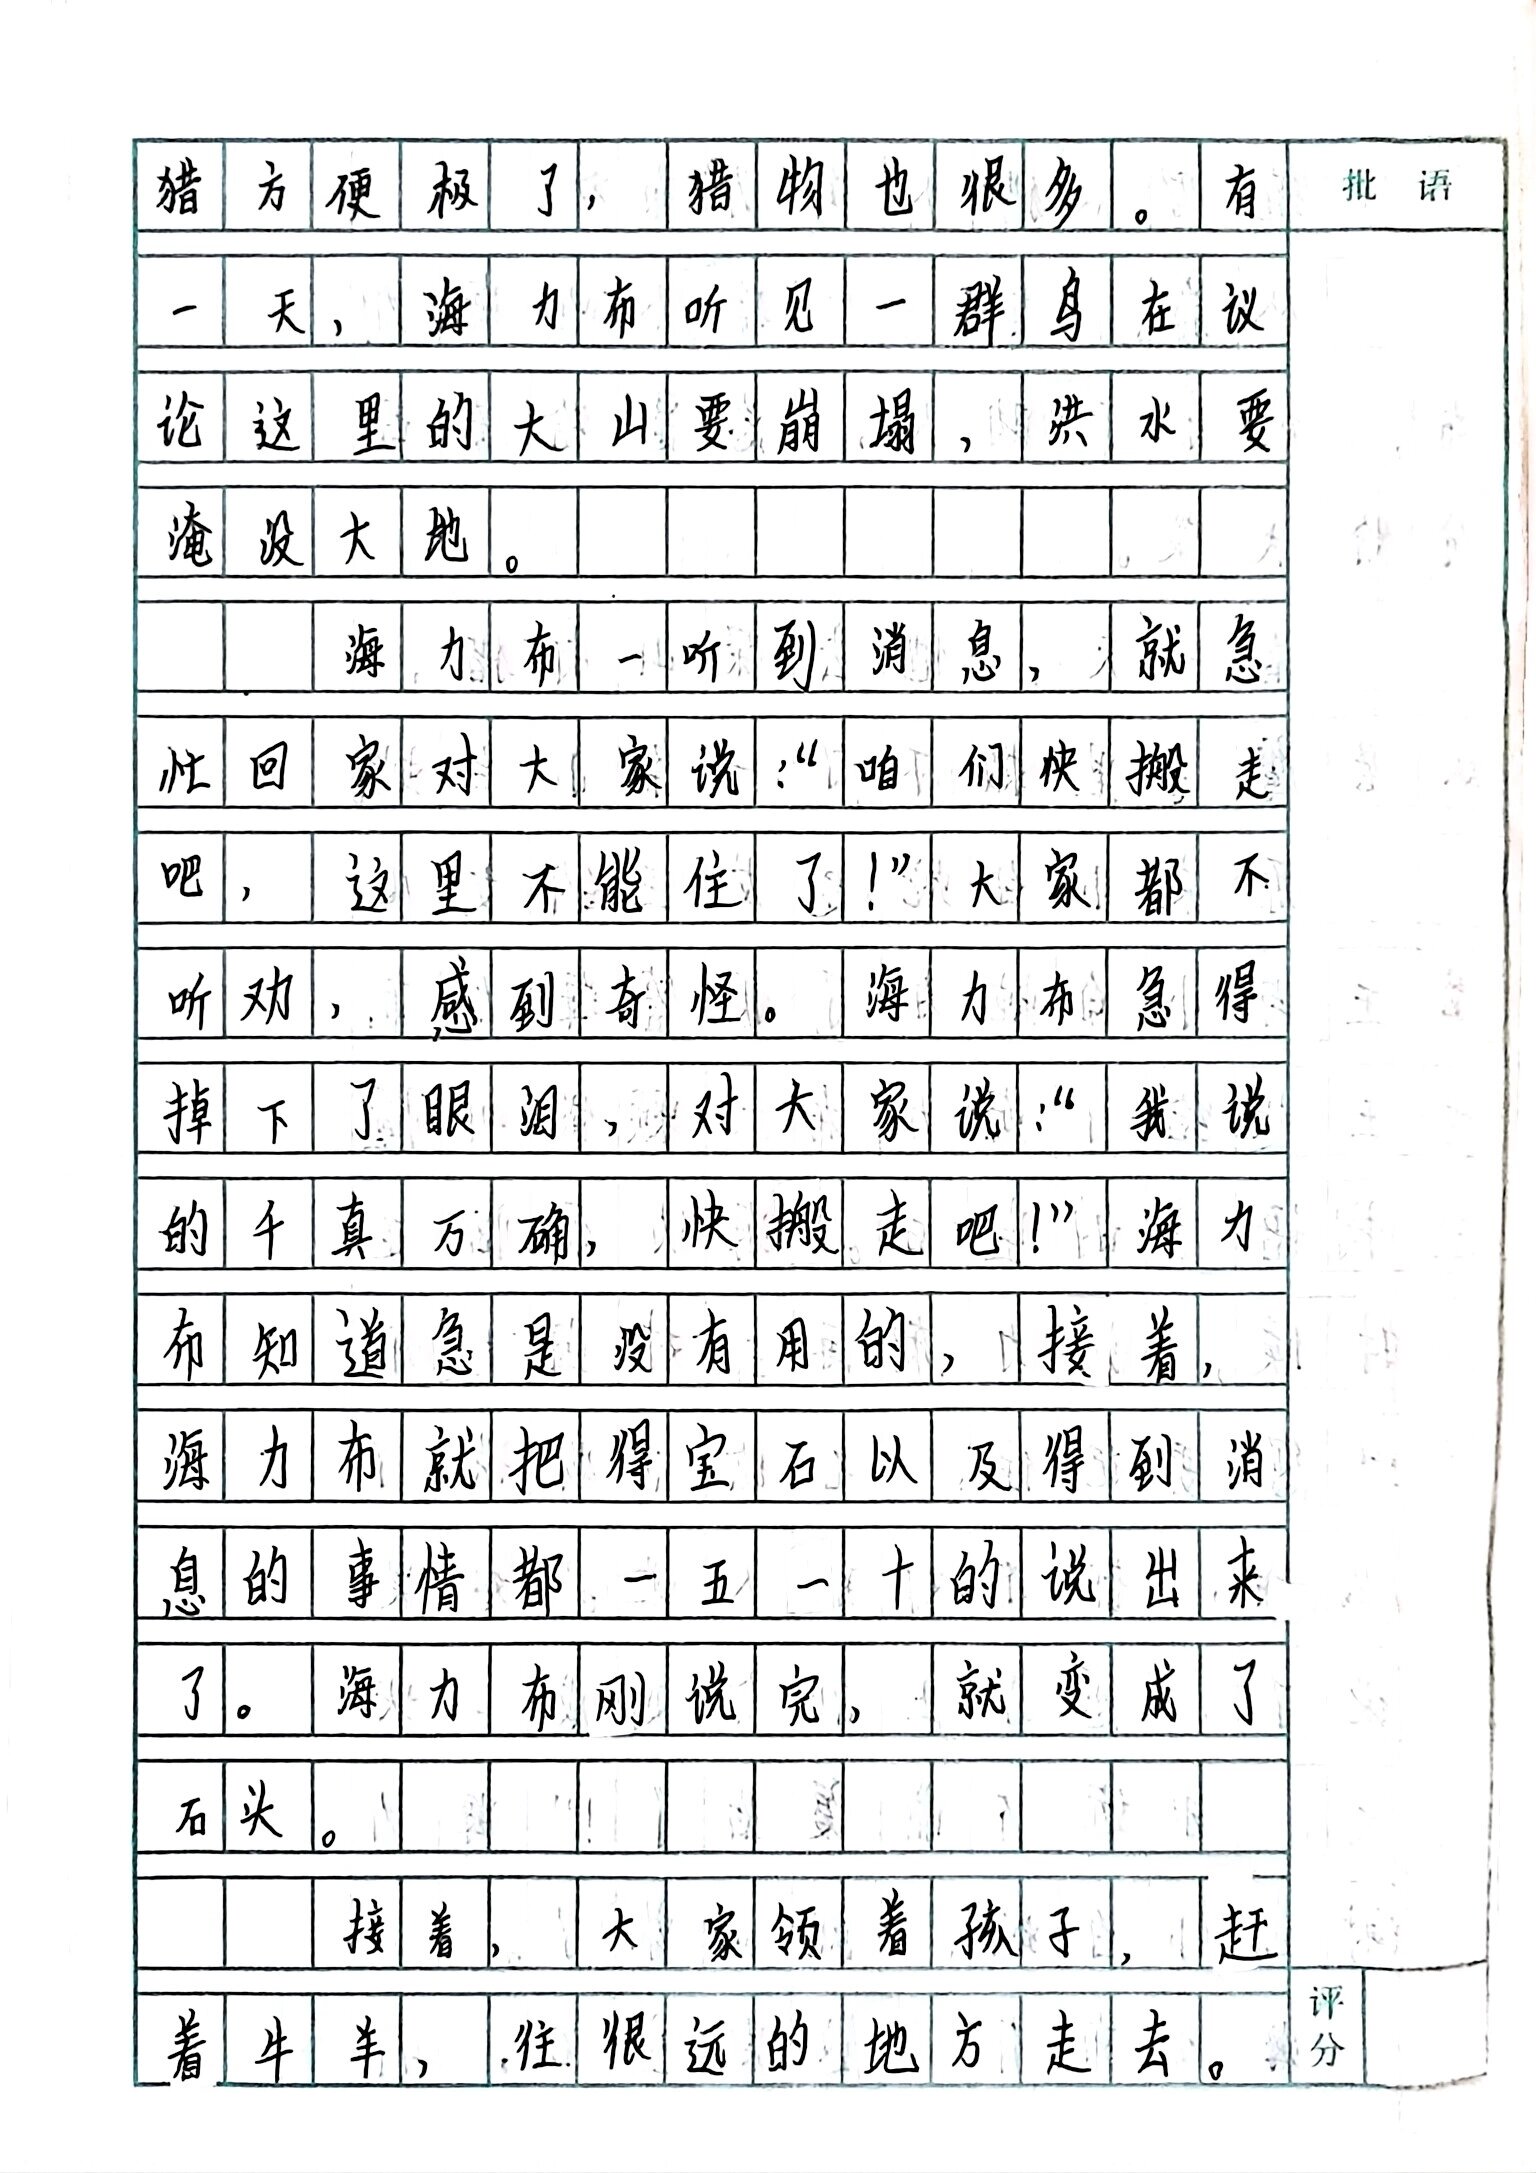 猎方便极了，猎物也很多。有
批语
一天，海力布听见一群鸟在议
论这里的大山要崩塌，洪水要
淹没大地。
海力布一听到消息，就急
忙回家对大家说：“咱们快搬走
吧，这里不能住了！”大家都不
听劝，感到奇怪。海力布急得
掉下了眼泪，对大家说：“我说
的千真万确，快搬走吧！”海力
布知道急是没有用的，接着，
海力布就把得宝石以及得到消
息的事情都一五一十的说出来
了。海力布刚说完，就变成了
石头。
接着，大家领着孩子，赶
着牛羊，往很远的地方走去。
评分